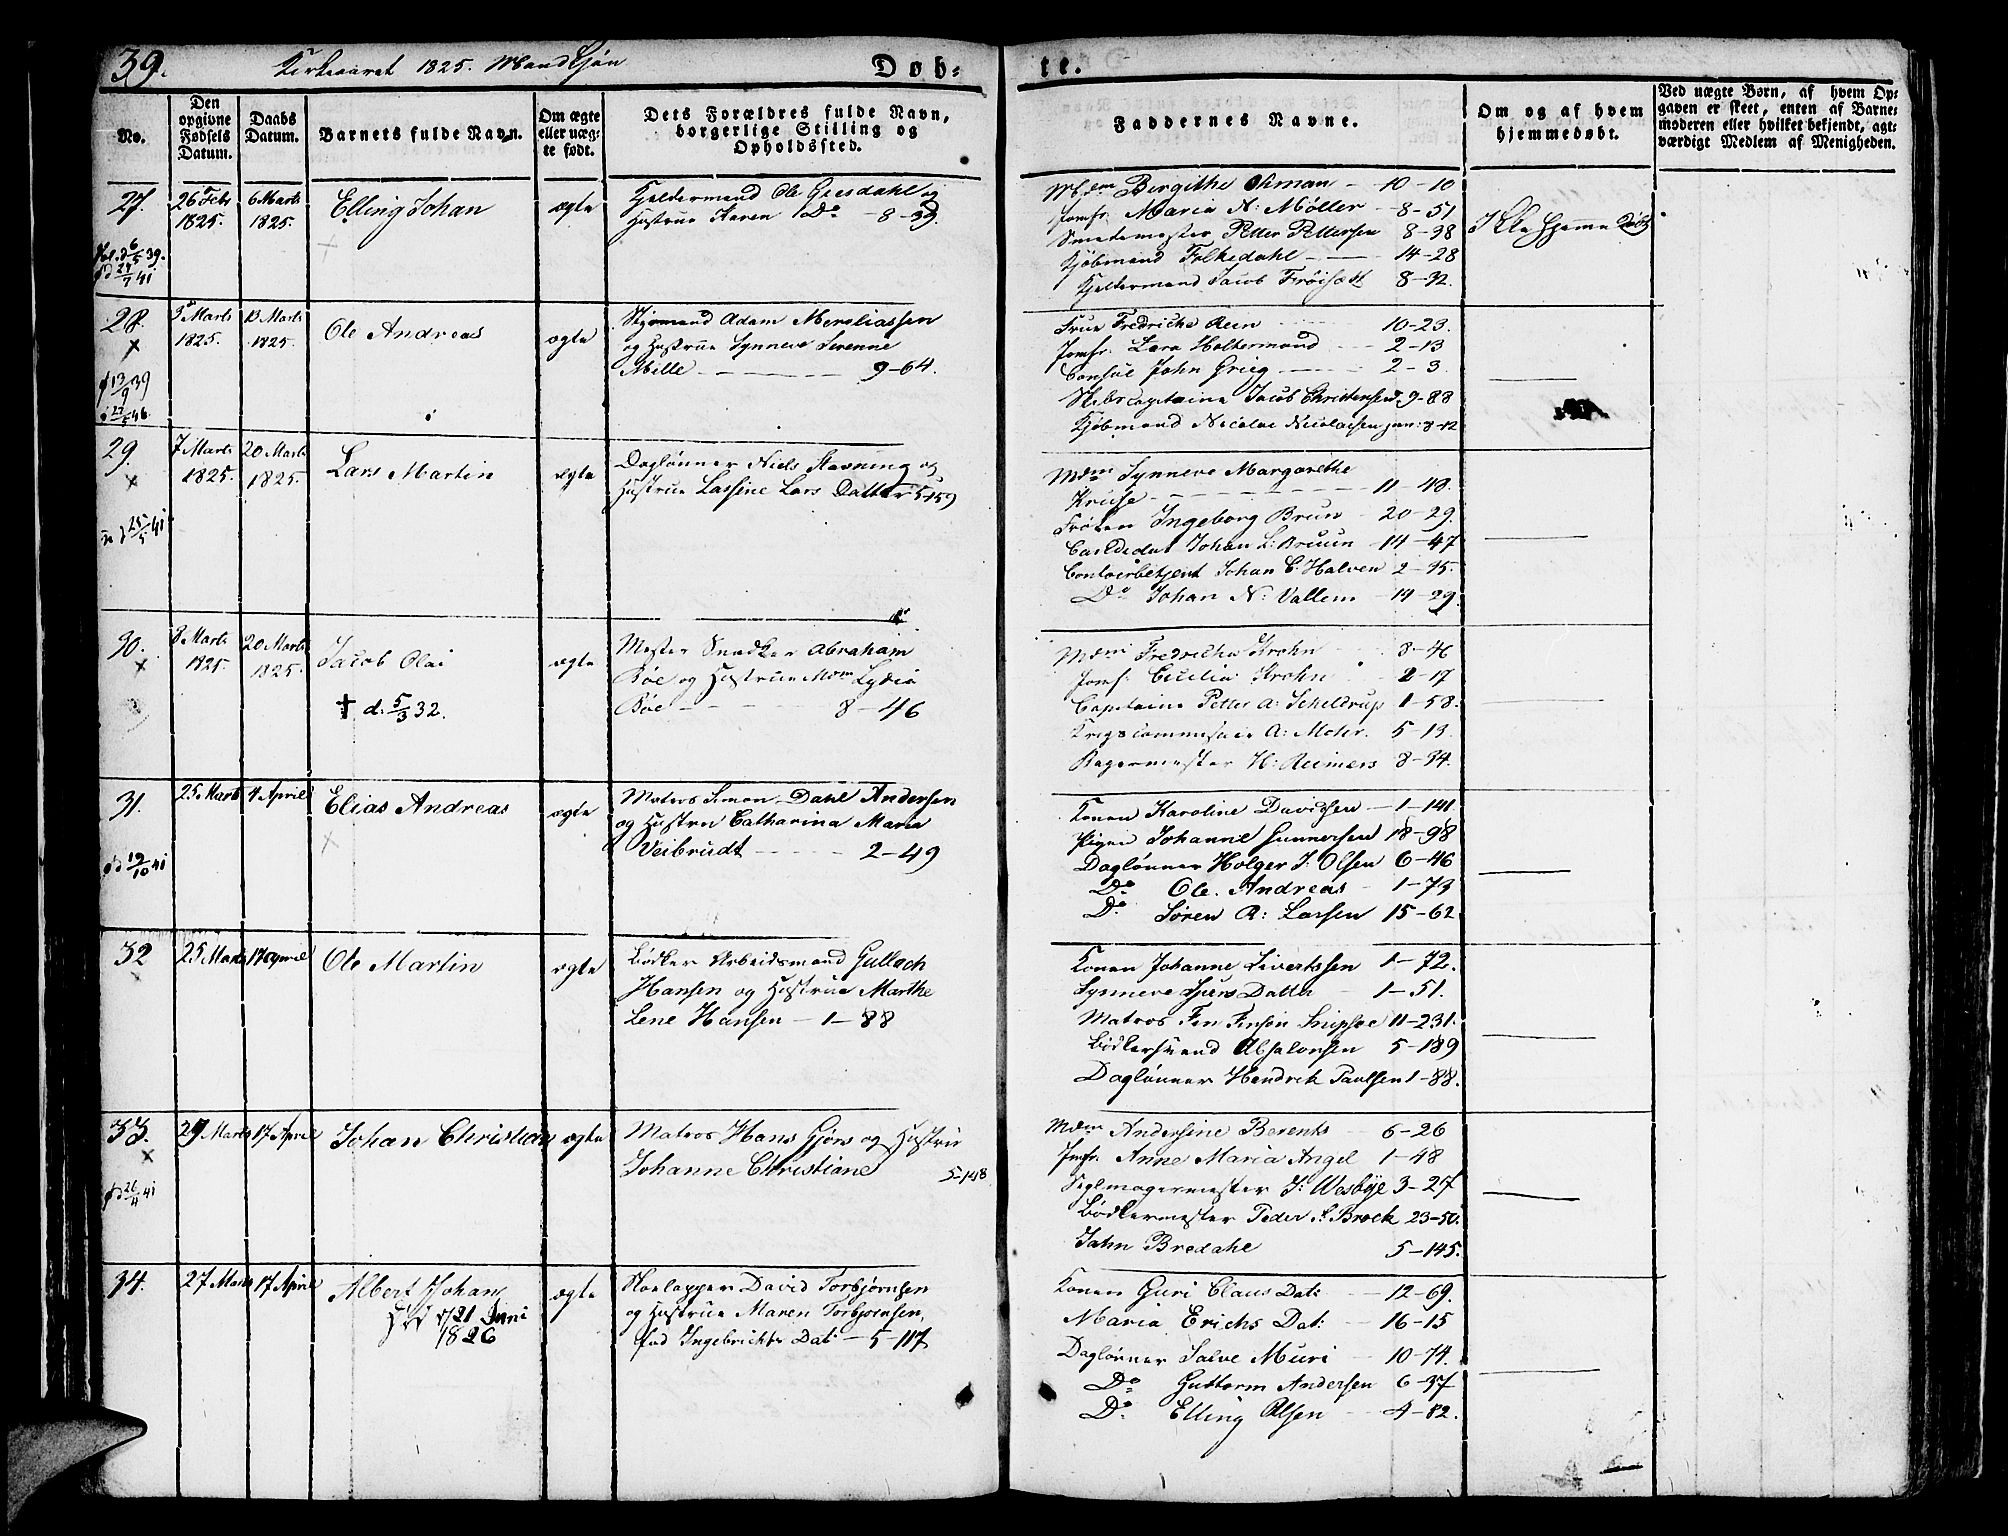 39. Kirkeaaret 1825. Mandkjøn Døb- te.
No.
Den opgivne Fødsels Datum.
Daabs Datum.
Barnets fulde Navn.
Om ægte eller uæg- te født.
Dets Forældres fulde Navn, borgerlige Stilling og Opholdssted.
Faddernes Navne.
Om og af hvem hjemmedøbt.
Ved uægte Børn, af hvem Op- gaven er skeet, enten af Barne- moderen eller hvilket bekjendt, agt- værdigt Medlem af Menigheden.
27. 26 Febr 1825. 6 Marts 1825. Elling Johan ægte
Kjeldermand Ole Giesdahl og
Hustrue Karen Do - 8-39.
Mdm Birgithe Ohman - 10-10
Jomfr. Maria N: Møller - 8-51
Smedemester Petter Pettersen 8-38
Kjøbmand Folkedahl - 14-28
Kjeldermand Jacob Frøisett 8-32.
Ikke hjemme Døbt
28. 3 Marts 1825. 13 Marts 1825. Ole Andreas ægte
Styrmand Adam Mereliassen
og Hustrue Synneve Serenne
Mille - 9-64.
Frue Fredricke Rein 10-23.
Jomfr. Lara Holtermand - 2-13
Consul John Grieg - 2-3.
Skibscapitaine Jacob Christensen 9-88
Kjøbmand Nicolai Nicolaisen jun: 8-12
29. 7 Marts 1825. 20 Marts 1825. Lars Martin ægte
Daglønner Niels Stavning og
Hustrue Lassine Lars Datter 5-159
Mdm Synneve Margarethe
Kruse - 11-48.
Frøken Ingeborg Brun - 20-29.
Candidat Johan L: Bruun - 14-47
Contoirbetjent Johan C: Halven 2-95.
Do Johan N: Vallem - 14-29.
30. 8 Marts 1825. 20 Marts 1825. Jacob Olai ægte
† d. 5/3 32.
Mester Snedker Abraham
Bøe og Hustrue Mdm Lydia
Bøe - 8-46
Mdm Fredricke Krohn 8-46
Jomf: Cecilia Krohn 2-17
Capitaine Petter A: Scheldrup 1-58.
Krigscommisair A: Mohr. 5-13.
Bagermester H: Reimers 8-34.
31. 25 Marts 4 April Elias Andreas ægte
Matros Simon Dahl Andersen
og Hustru Catharina Maria
Veibrudt - 2-49
Konen Karoline Davidsen - 1-141.
Pigen Johanne Gunnersen 18-98
Daglønner Holger J: Olsen 6-46
Do Ole Andreas - 1-73
Do. Søren R: Larsen 15-62
32 25 Marts 17 April Ole Martin ægte
Bødker Arbeidsmand Gullach
Hansen og Hustrue Marthe
Lene Hansen - 1-88
Konen Johanne Sivertssen 1-72.
Synneve Sjurs Datter 1-51.
Matros Fin Finsen Snipsøe 11-231.
Bødkersvend Absalonsen 5-189
Daglønner Hendrek Paulsen 1-88.
33. 29 Marts 17 April Johan Christian ægte
Matros Hans Gjørs og Hustrue
Johanne Christiane 5-148
Mdm Andersine Berents 6-26
Jmfr. Anne Maria Angel 1-48
Seglmagermester J: Wesbye 3-27
Bødkermester Peder S Brock 23-50.
Jahn Bredahl 5-145.
34. 27 Marts 17 April Albert Johan ægte
Død d/21 Juni
1826
Skoelapper David Torbjørnsen
og Hustrue Maren Torbjørnsen,
fød Ingebrickts Dat: - 5-117
Konen Guri Claus Dat: - 12-69.
Maria Erichs Dat: - 16-15
Daglønner Salve Muri - 10-74.
Do Guttorm Andersen 6-37
Do. Elling Olsen - 4-82.